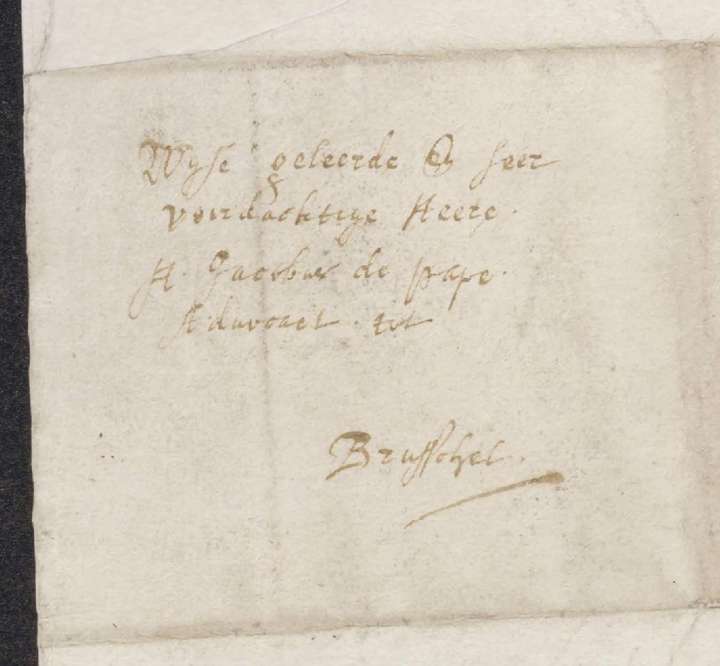 Wyse geleerde & seer
voirdachtige Heere.
H. Jacobus de pape.
Aduocaet. tot
Brusschel.